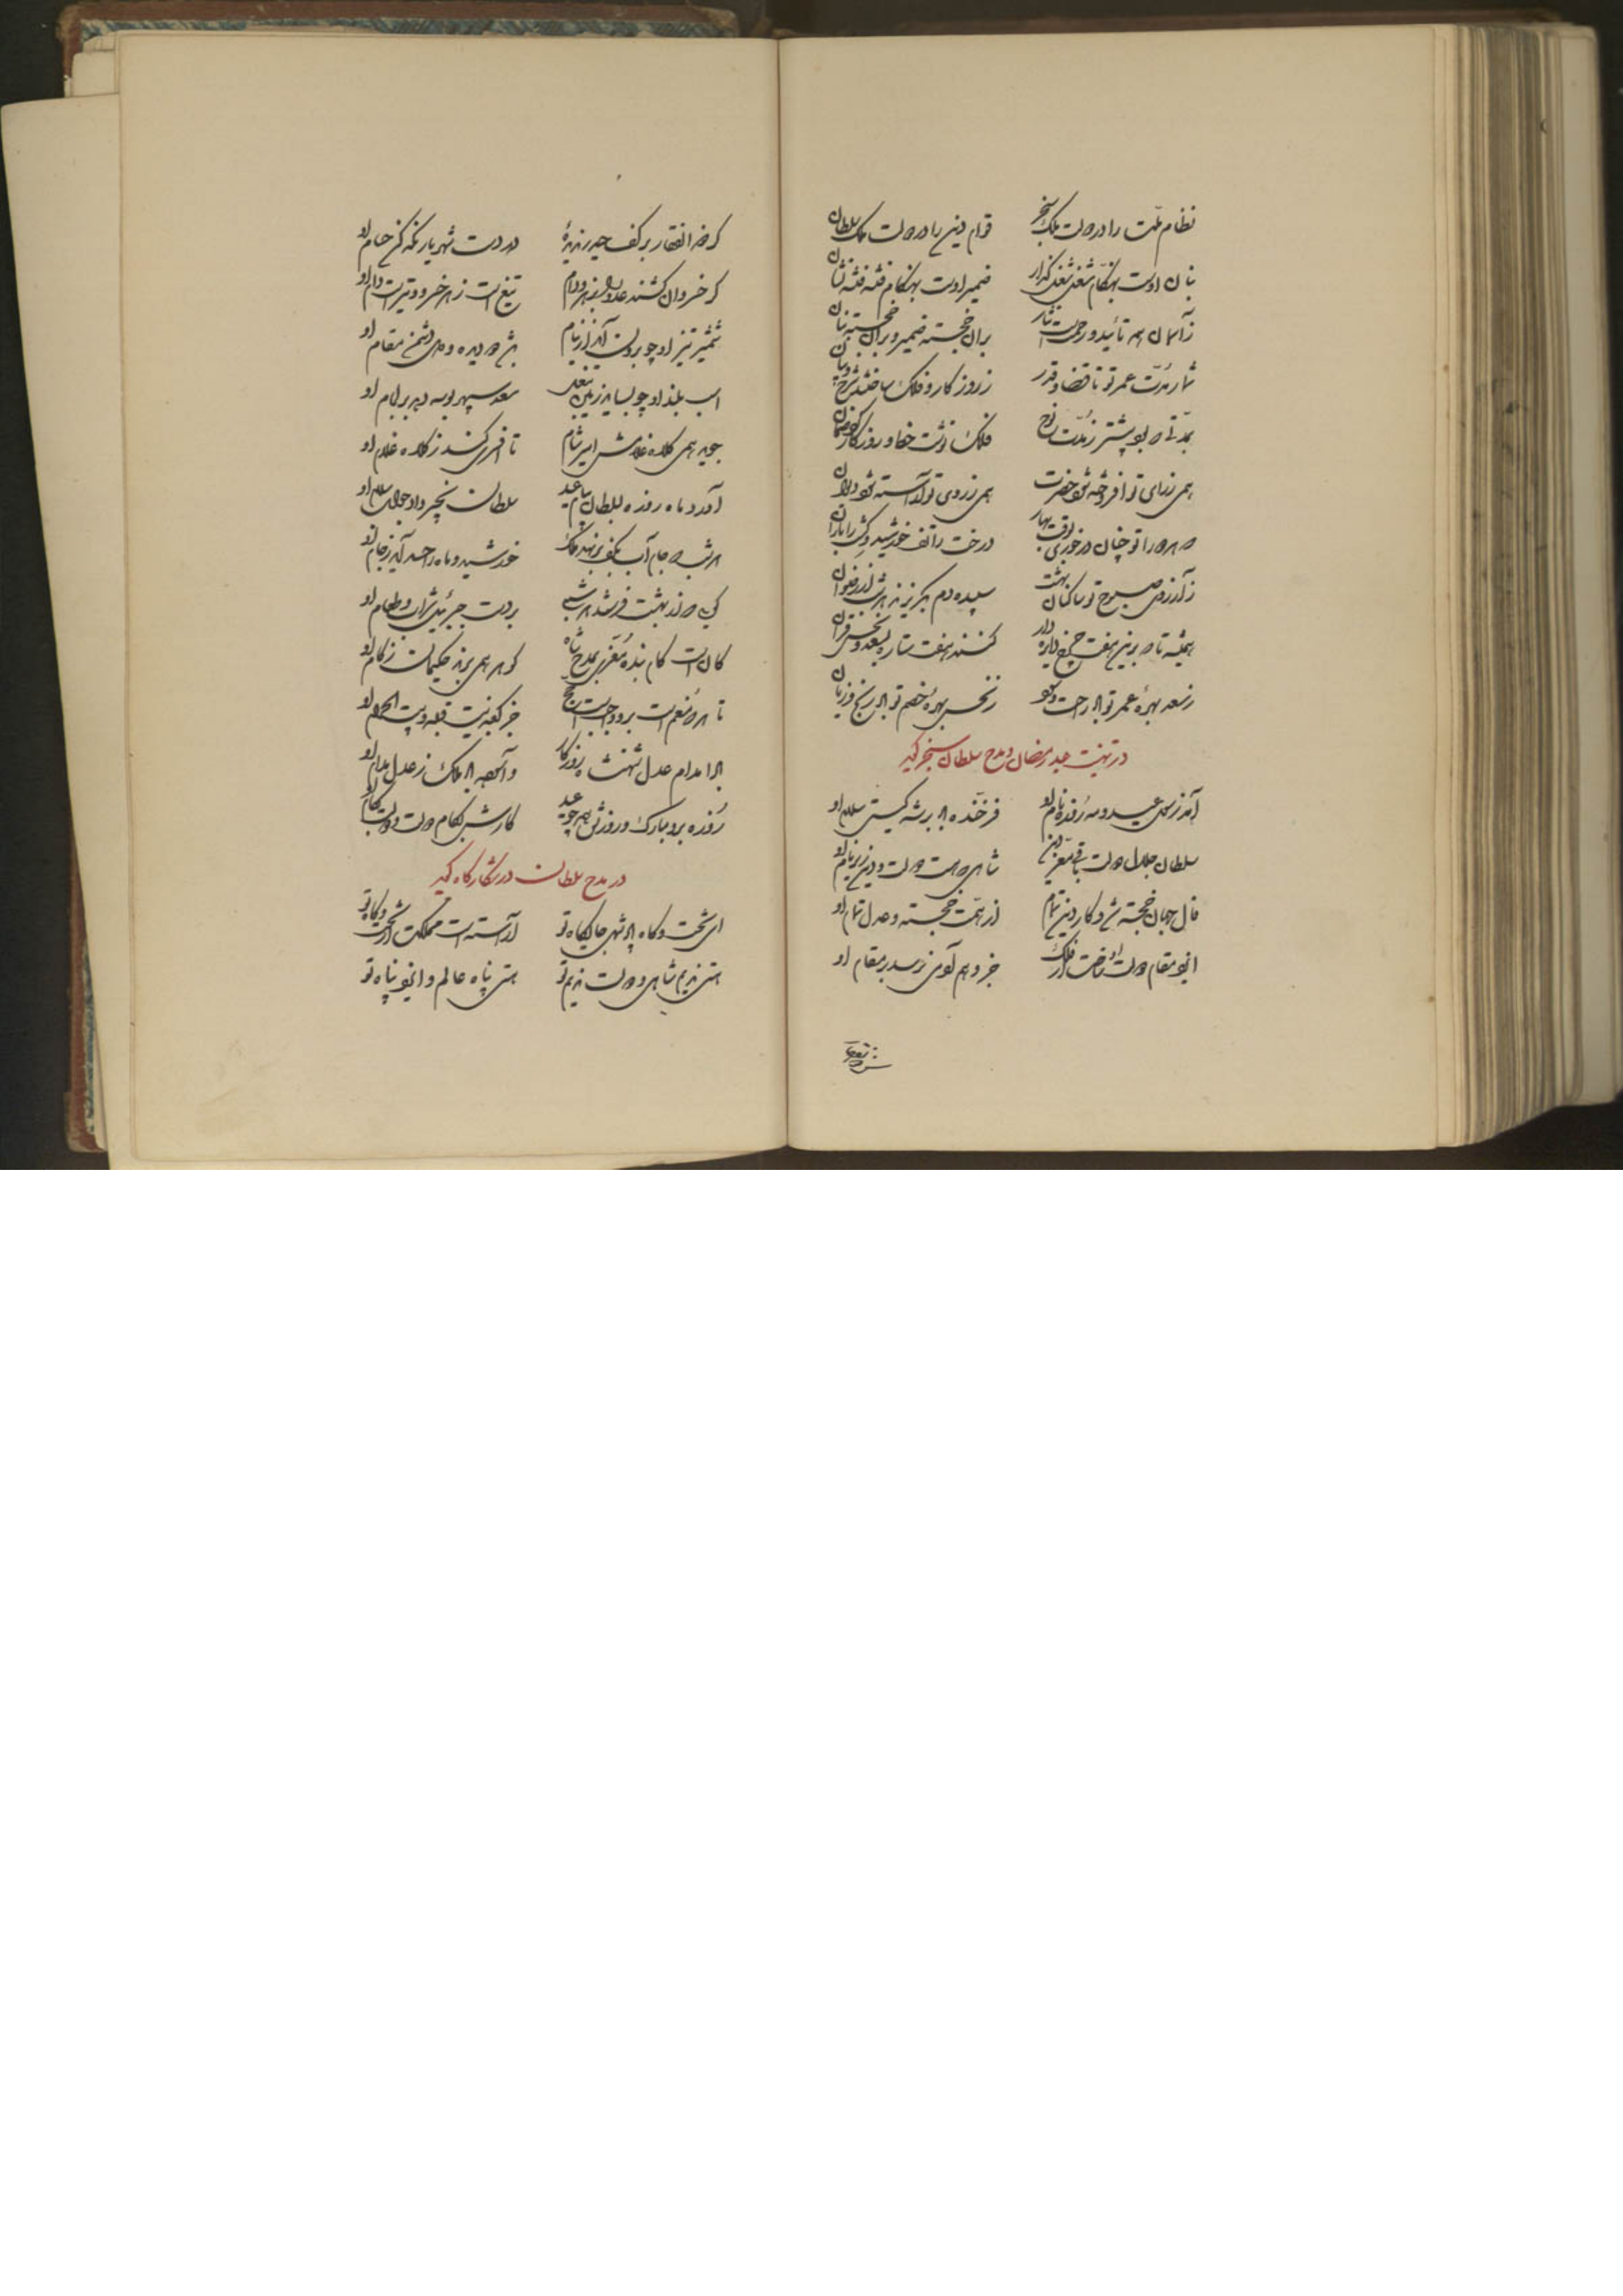 نظام ملت را در دولت ملک سنجر قوام دین را در دولت ملک سلطان
بنان اوست بهنگام شغل شغل گذار ضمیر اوست بهنگام فتنه فتنه نشان
ز آسمان همه تأئید و رحمت نثار بران خجسته ضمیر و بران خجسته بنان
شمار مدت عمر تو تا قضا و قدر ز روز کار و فلک ساختند
بمدتی که بود پیشتر ز مدت نوح فلک نوشت خط و روزکار کرد ضمان
همی ز رای تو افروخته شود حضرت همی ز روی تو آراسته شود
که مر ورا تو چنان در خوری بوقت بهار درخت را تف خورشید و کشت را باران
ز آرزوی صبوح تو ساکنان بهشت سپیده دم
همیشه تا که برین هفت چرخ دایره وار کنند هفت ستاره بسعد و نحس قران
ز سعد بهره عمر تو باد راحت و ز نحس بهره خصم تو باد رنج و زیان
در تهنیت عید رمضان و مدح سلطان سنجر گوید
آمد رسول عید و مه روزه نام او فرخنده باد بر شه گیتی سلام او
سلطان جلال دولت باقی معز دین شاهی که هست دولت و دین زیر نام او
فال جهان خجسته شد و کار دین تمام از همت خجسته و عدل تمام او
ایزد مقام دولت او ساخت از فلک جز وهم آدمی نرسد بر مقام او
کر ذوالفقار بر کف حیدر در دست شهریار نگه کن حسام او
کر خسروان کشند عدو را تیغ است زهر خسرو و تیر است دام او
شمشیر تیز او چو برون آید از نیام باشد دیده و دل دشمن مقام او
اسب بلند او چو بساید زمین بنعل سعد سپهر بوسه دهد بر لجام او
جوید همی کلاه غلامش امیر شام تا افسری کند ز کلاه غلام او
آورد ماه روزه بسلطان پیام عید سلطان سنجر داد جواب سلام او
هر شب که جام آب بکف برنهد ملک خورشید و ماه را حسد آید ز جام او
کوئی که از بهشت فرستد هر شبی بر دست جبرئیل شراب و طعام او
کان است کام بنده معزی بمدح شاه گوهر همی برند حکیمان ز کام او
تا هر که منعم است برو واجب است حج جز کعبه نیست قبله و بیت الحرام او
بادا مدام عدل شهنشاه روزگار و آسوده باد ملک ز عدل مدام او
روزه برو مبارک و روزش همه چو عید کارش بکام دولت و دولت بکام او
در مدح سلطان در شکارگاه گوید
ای تخت و گاه پادشهی جایگاه تو آراسته است مملکت از تخت و گاه تو
هستی ندیم شاهی و دولت ندیم تو هستی پناه عالم و ایزد پناه تو